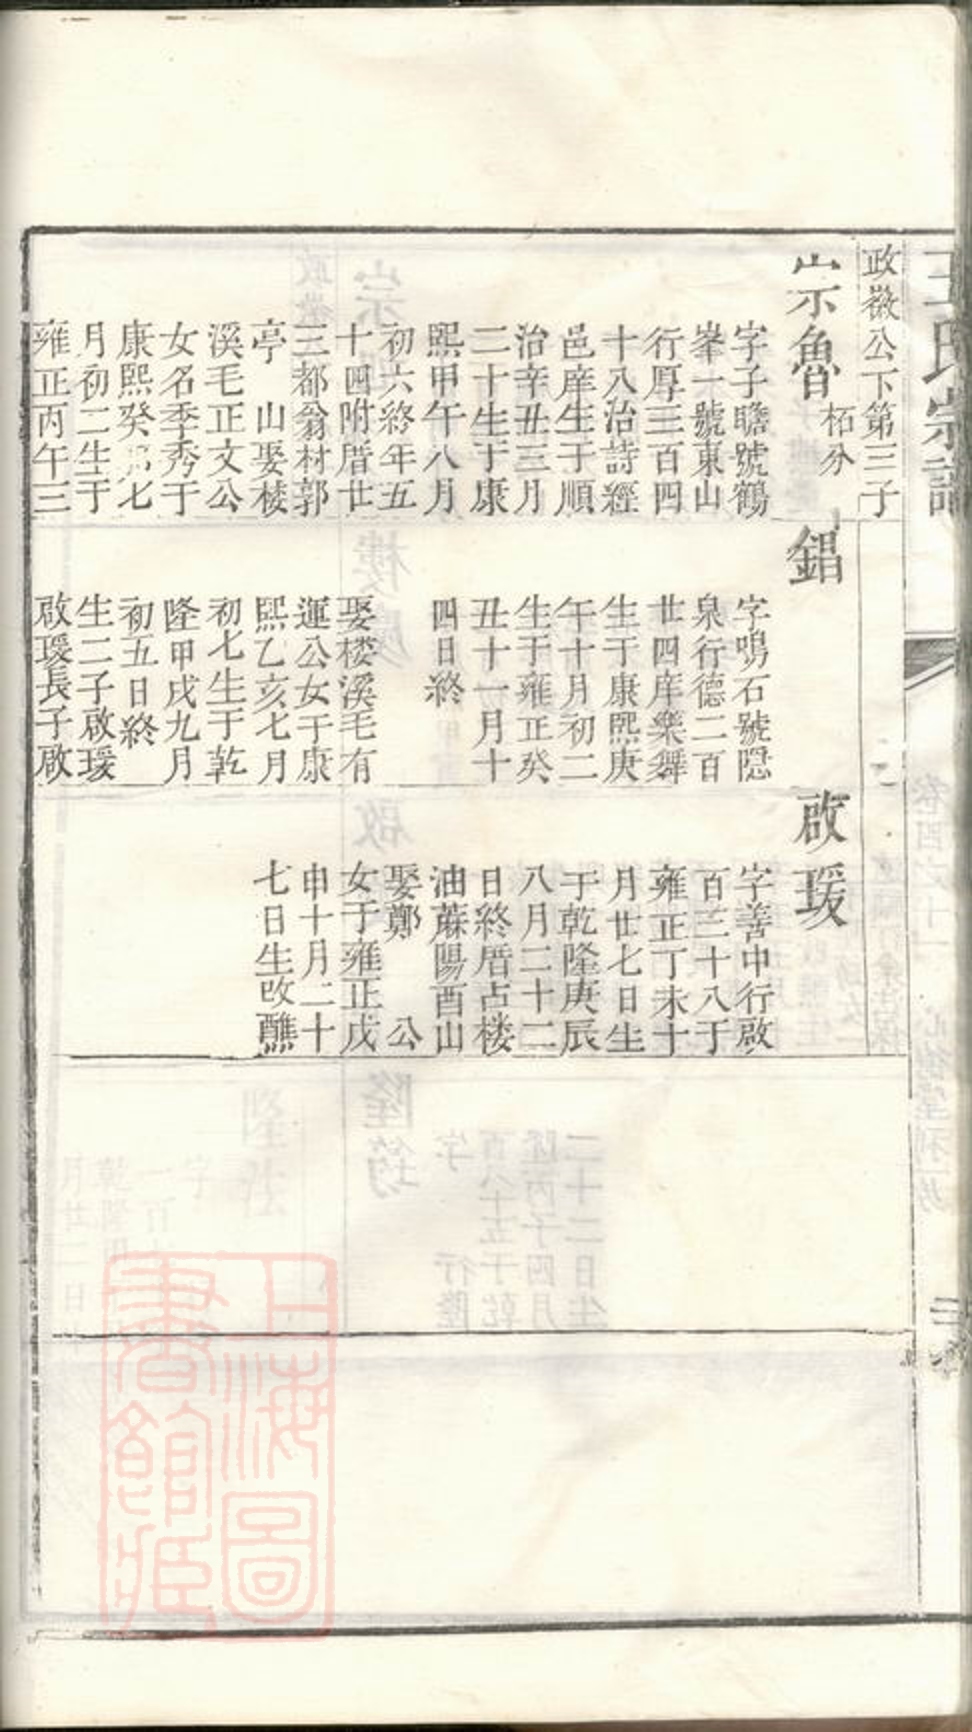 王氏宗譜
政徽公下第三子
柘分
崇魯
字子瞻號鶴
峯一號東山
行厚三百四
十八治詩經
邑庠生于順
治辛丑三月
二十生于康
熙甲午八月
初六終年五
十四附厝廿
三都翁村郭
亭 山娶楼
溪毛正文公
女名季秀于
康熙癸 七
月初二生于
雍正丙午三
錩
字鳴石號隠
泉行德二百
廿四庠樂舞
生于康熙庚
午十月初二
生于雍正癸
丑十一月十
四日終
娶楼溪毛有
運公女于康
熙乙亥七月
初七生于乾
隆甲戌九月
初五日終
生二子啟瑗
啟瑗長子啟
啟瑗
字善中行啟
百三十八于
雍正丁未十
月廿七日生
于乾隆庚辰
八月二十二
日終厝占楼
油蔴陽酉山
娶鄭 公
女于雍正戊
申十月二十
七日生改醮
上海圖
書館藏